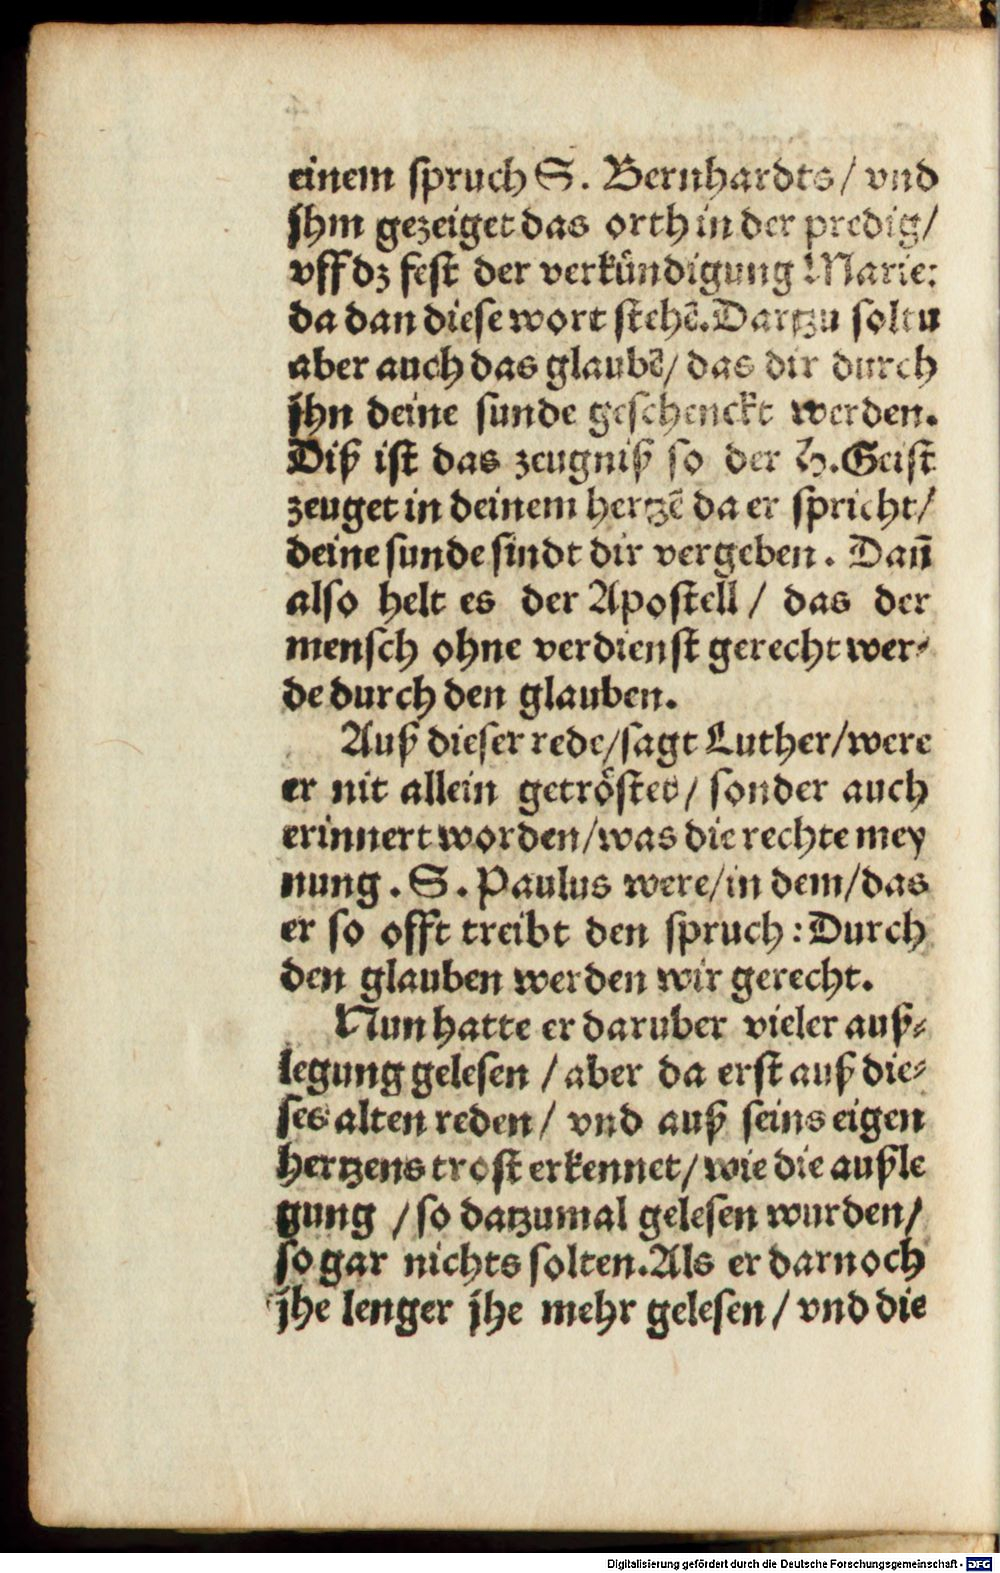 einem spruch S. Bernhardts/ vnd
jhm gezeiget das orth in der predig/
vff dz fest der verkündigung Marie:
da dan diese wort stehē. Dartzu soltu
aber auch das glaubē/ das dir durch
jhn deine sunde geschenckt werden.
Diß ist das zeugniß so der H. Geist
zeuget in deinem hertzē da er spricht/
deine sunde sindt dir vergeben. Dañ
also helt es der Apostell/ das der
mensch ohne verdienst gerecht wer⸗
de durch den glauben.
Auß dieser rede/sagt Luther/were
er nit allein getröstet/ sonder auch
erinnert worden/was die rechte mey
nung. S. Paulus were/in dem/das
er so offt treibt den spruch: Durch
den glauben werden wir gerecht.
Nun hatte er daruber vieler auß⸗
legung gelesen / aber da erst auß die⸗
ses alten reden/ vnd auß seins eigen
hertzens trost erkennet/ wie die außle
gung /so datzumal gelesen wurden/
so gar nichts solten. Als er darnoch
jhe lenger jhe mehr gelesen/ vnd die
Digitalisierung gefördert durch die Deutsche Forschungsgemeinschaft - DFG